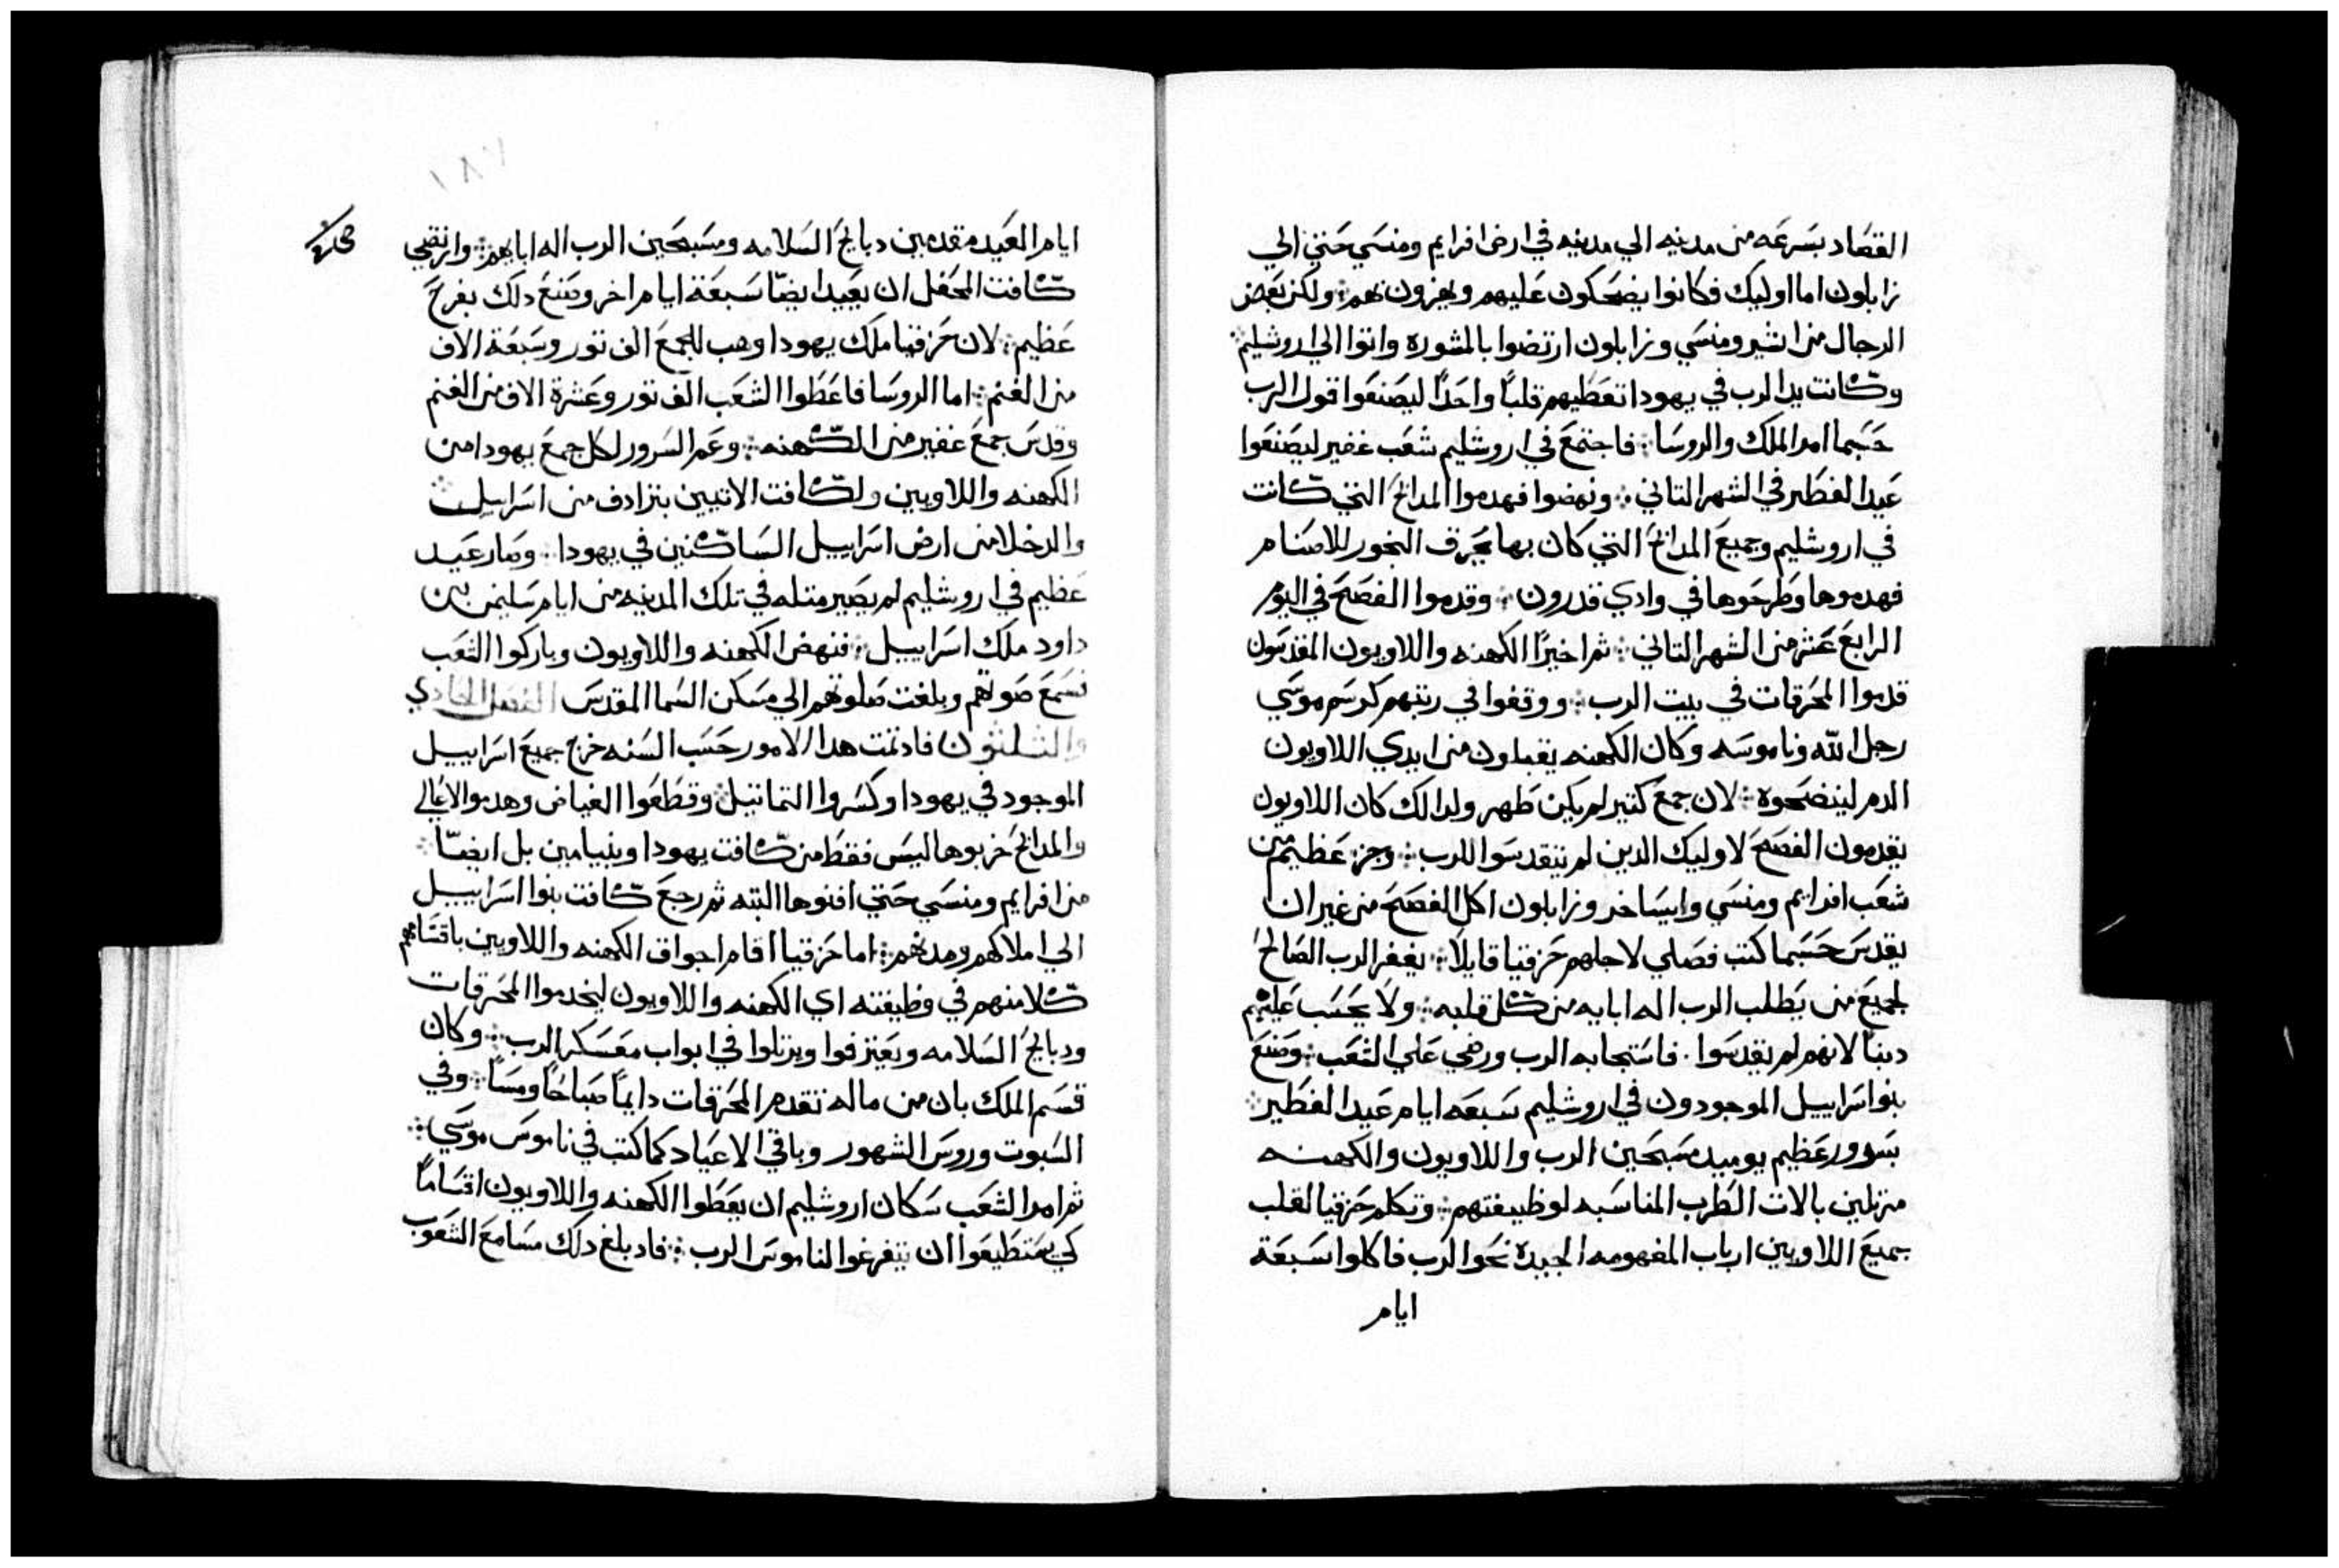 القصاد بسرعه من مدينه الي مدينه في ارض افرايم ومنسي حتي الي
زابلون اما اوليك فكانوا يضحكون عليهم ويهزون بهم ولكن بعض
الرجال من اشير ومنسي وزابلون ارتضوا بالمشوره واتوا الي اروشليم
وكانت يد الرب في يهودا تعطيهم قلباً واحداً ليصنعوا قول الرب
حسبما امر الملك والروسا فاجتمع في اروشليم شعب غفير ليصنعوا
عيد الفطير في الشهر التاني ونهضوا فهدموا المدابح التي كانت
في اروشليم وجميع المدابح التي كان بها يحرق البخور للاصنام
فهدموها وطرحوها في وادي قدرون وقدموا الفصح في اليوم
الرابع عشر من الشهر التاني ثم اخيرًا الكهنه واللاويون المقدسون
قدموا المحرقات في بيت الرب ووقفوا في رتبهم كرسم موسي
رجل الله وناموسه وكان الكهنه يقبلون من ايدي اللاويون
الدم لينضحوه لان جمع كتير لم يكن طهر ولدالك كان اللاويون
يقدمون الفصح لاوليك الدين لم يتقدسوا للرب وجز عظيم من
شعب افرايم ومنسي وايساخر وزابلون اكل الفصح من غير ان
يقدس حسبما كتب فصلي لاجلهم حزقيا قايلاً يغفر الرب الصالح
لجميع من يطلب الرب اله ابايه من كل قلبه ولا يحسب عليهم
دبناً لانهم لم يقدسوا فاستجابه الرب ورضي علي الشعب وصنع
بنو اسراييل الموجودون في اروشليم سبعه ايام عيد الفطير
بسرور عظيم يوميد مسبحين الرب واللاويون والكهنه
مزتلين بالات الطرب المناسبه لوظيفتهم وتكلم حزقيا لقلب
جميع اللاويين ارباب المفهومه الجيدة نحو الرب فاكلوا سبعة
ايام
٧٨١
ايام العيد مقدمين دبايح السلامه ومسبحين الرب اله ابايهم وارتضي
كافت المحفل ان يعيد ايضاً سبعة ايام اخر وصنع دلك بفرح
عظيم لان حزقيا ملك يهودا وهب للجمع الف تور وسبعة الاف
من الغنم اما الروسا فاعطوا الشعب الف تور وعشرة الاف من الغنم
وقدس جمع غفير من الكهنه وعم السرور لكل جمع يهودا من
الكهنه واللاويين ولكافت الاتيين بتزادف من اسراييل
والدخلا من ارض اسراييل الساكنين في يهودا وصار عيد
عظيم في اروشليم لم يصير متله في تلك المدينه من ايام سليمن بن
داود ملك اسراييل فنهض الكهنه واللاويون وباركوا الشعب
فسمع صوتهم وبلغت صلوتهم الي مسكن السما المقدس الفصل الحادي
والتلتون فاد تمت هدا الامور حسب السنه خرج جميع اسراييل
الموجود في يهودا وكسروا التماتيل وقطعوا الغياض وهدموا الاعالي
والمدابح خربوها ليس فقط من كافت يهودا وبنيامين بل ايضاً
من افرايم ومنسي حتي افنوها البته تم رجع كافت بنوا اسراييل
الي املاكهم ومدنهم اما حزقيا اقام اجواق الكهنه واللاويين باقسامهم
كلا منهم في وظيفته اي الكهنه واللاويون ليخدموا المحرقات
ودبايح السلامه ويعتزفوا ويزتلوا في ابواب معسكر الرب وكان
قسم الملك بان من ماله تقدم المحرقات دايماً صباحاً ومساً وفي
السبوت وروس الشهور وباقي الاعياد كما كتب في ناموس موسي
تم امر الشعب سكان اروشليم ان يعطوا الكهنه واللاويون اقساماً
كي يستطيعوا ان يتفرغوا لناموس الرب فاد بلغ دلك مسامع الشعوب